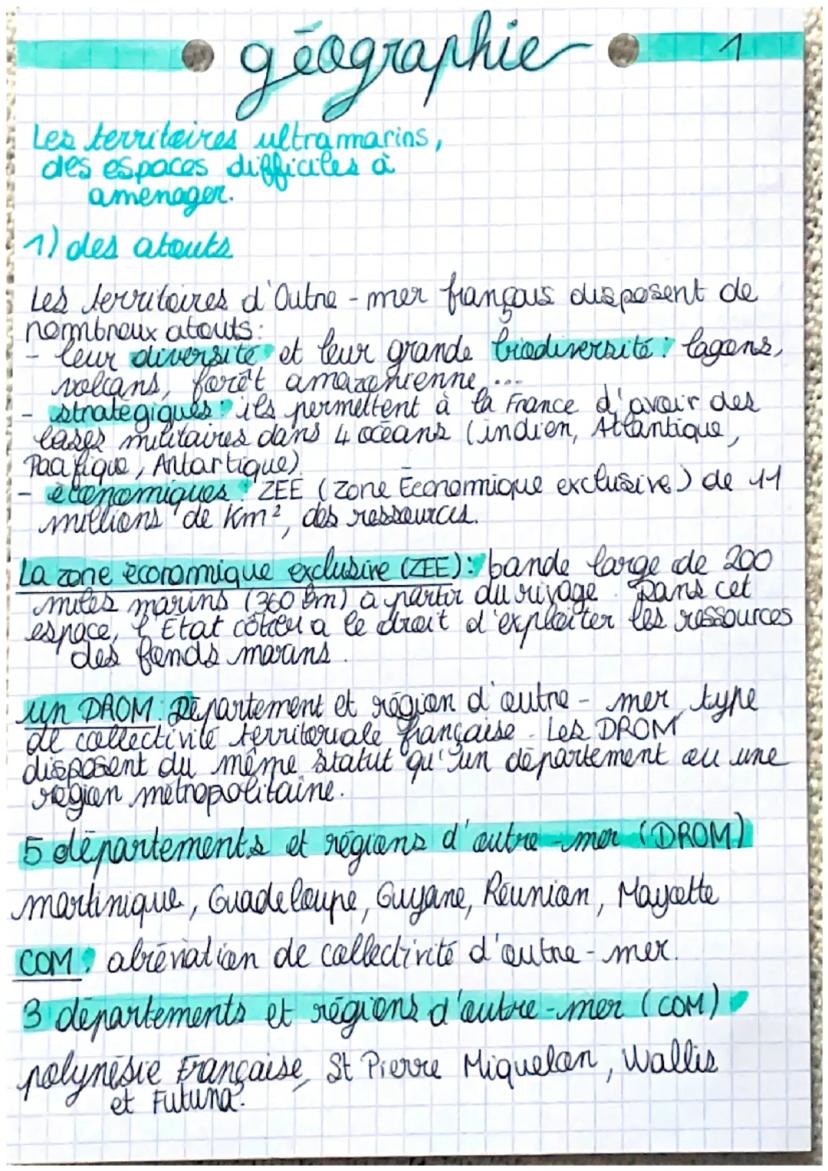 géographie 1
Les territoires ultramarins,
des espaces difficiles à
aménager.
1) des atouts
Les territoires d'Outre-mer français disposent de
nombreux atouts:
- leur diversité et leur grande biodiversité: lagons,
volcans, forêt amazonienne...
- stratégiques: ils permettent à la France d'avoir des
bases militaires dans 4 océans (indien, Atlantique,
Pacifique, Antartique)
- économiques: ZEE (Zone Économique exclusive) de 11
millions de Km², des ressources.
La zone économique exclusive (ZEE): bande large de 200
miles marins (360 km) à partir du rivage. Dans cet
espace, l'État côtier a le droit d'exploiter les ressources
des fonds marins.
un DROM: Département et région d'outre-mer, type
de collectivité territoriale française. Les DROM
disposent du même statut qu'un département ou une
région métropolitaine.
5 départements et régions d'outre-mer (DROM)
martinique, Guadeloupe, Guyane, Réunion, Mayotte
COM: abréviation de collectivité d'outre-mer.
3 départements et régions d'outre-mer (COM)
polynésie Française, St Pierre Miquelon, Wallis
et Futuna.